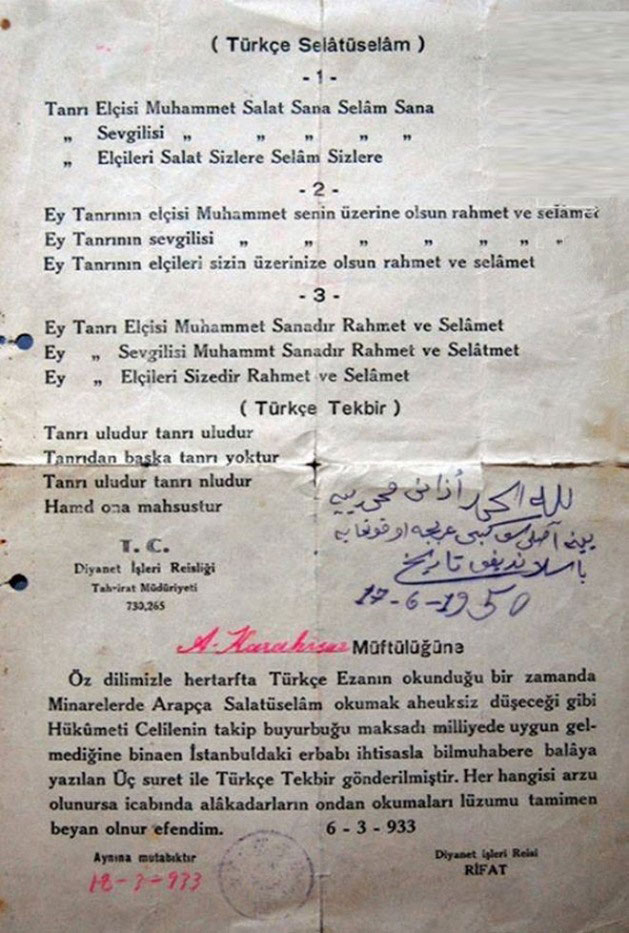 ( Türkçe Selâtüselâm )
- 1 -
Tanrı Elçisi Muhammet Salat Sana Selâm Sana
„ Sevgilisi „ „ „ „ „
„ Elçileri Salat Sizlere Selâm Sizlere
- 2 -
Ey Tanrının elçisi Muhammet senin üzerine olsun rahmet ve selâmet
Ey Tanrının sevgilisi „ „ „ „ „ „ „
Ey Tanrının elçileri sizin üzerinize olsun rahmet ve selâmet
- 3 -
Ey Tanrı Elçisi Muhammet Sanadır Rahmet ve Selâmet
Ey „ Sevgilisi Muhammt Sanadır Rahmet ve Selâtmet
Ey „ Elçileri Sizedir Rahmet ve Selâmet
( Türkçe Tekbir )
Tanrı uludur tanrı uludur
Tanrıdan başka tanrı yoktur
Tanrı uludur tanrı nludur
Hamd ona mahsustur
لله الحمد أذان محمدییه
ینه آصلی کبی عربجه اوقونمایه
باشلاندیغی تاریخ
17-6-1950
T. C.
Diyanet İşleri Reisliği
Tahrirat Müdüriyeti
730,265
A-Karahisar Müftülüğüne
Öz dilimizle hertarfta Türkçe Ezanın okunduğu bir zamanda
Minarelerde Arapça Salatüselâm okumak aheuksiz düşeceği gibi
Hükûmeti Celilenin takip buyurbuğu maksadı milliyede uygun gel-
mediğine binaen İstanbuldaki erbabı ihtisasla bilmuhabere balâya
yazılan Üç suret ile Türkçe Tekbir gönderilmiştir. Her hangisi arzu
olunursa icabında alâkadarların ondan okumaları lüzumu tamimen
beyan olnur efendim. 6 - 3 - 933
Aynına mutabıktır
18-3-933
Diyanet işleri Reisi
RİFAT